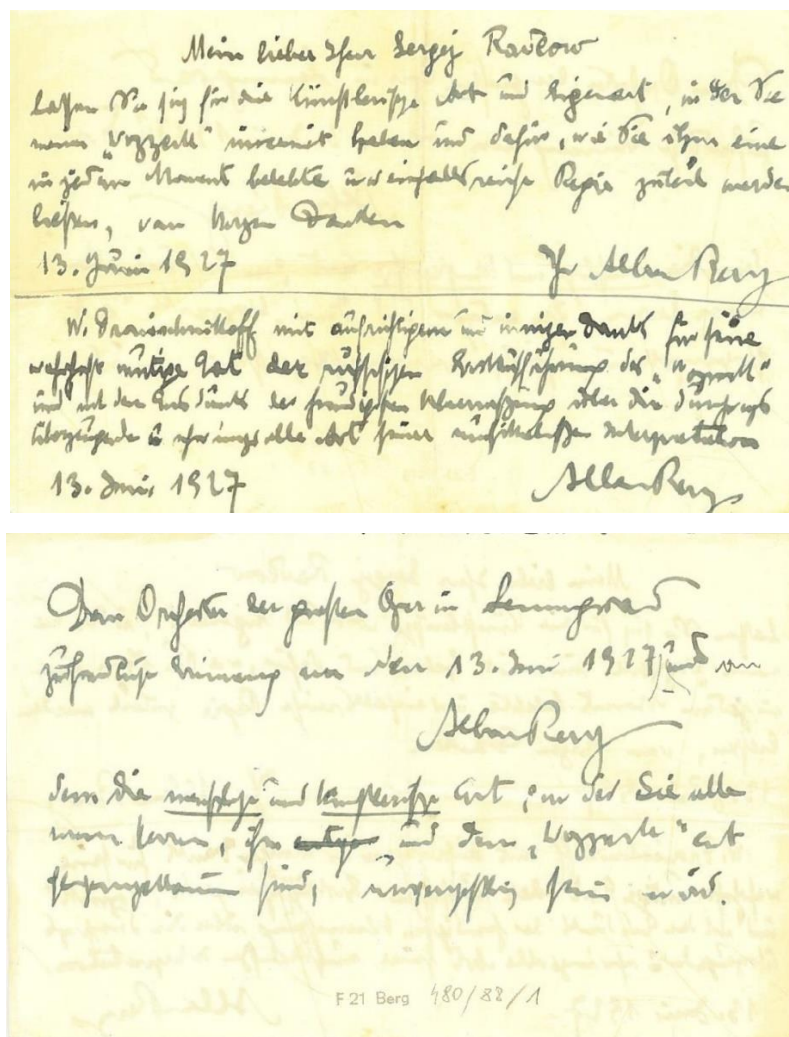 Mein lieber Herr Sergej Radlow
lassen Sie sich für die künstlerische Art und Eigenart, in der Sie
meinen „Wozzeck“ inszeniert haben und dafür, wie Sie ihm eine
in jedem Moment belebte und einfallsreiche Regie zuteil werden
ließen, von Herzen danken
13. Juni 1927 Ihr Alban Berg
W. Dranischnikoff mit aufrichtigem und innigen Dank für seine
wahrhaft mutige Tat der russischen Erstaufführung des „Wozzeck“
und mit dem Ausdruck der freudigsten Überraschung über die durchwegs
überzeugende Art seiner musikalischen Interpretation
13. Juni 1927 Alban Berg
Dem Orchester der großen Oper in Leningrad
Erinnerung an den 13. Juni 1927 und an
Alban Berg
dem die menschliche und künstlerische Art, in der Sie alle
meine Herren, ihm und dem „Wozzeck“ ent
gegengekommen sind, unvergeßlich sein wird.
F 21 Berg 480/88/1